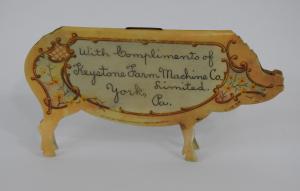 With Compliments of
Keystone Farm Machine Co.
Limited.
York, Pa.